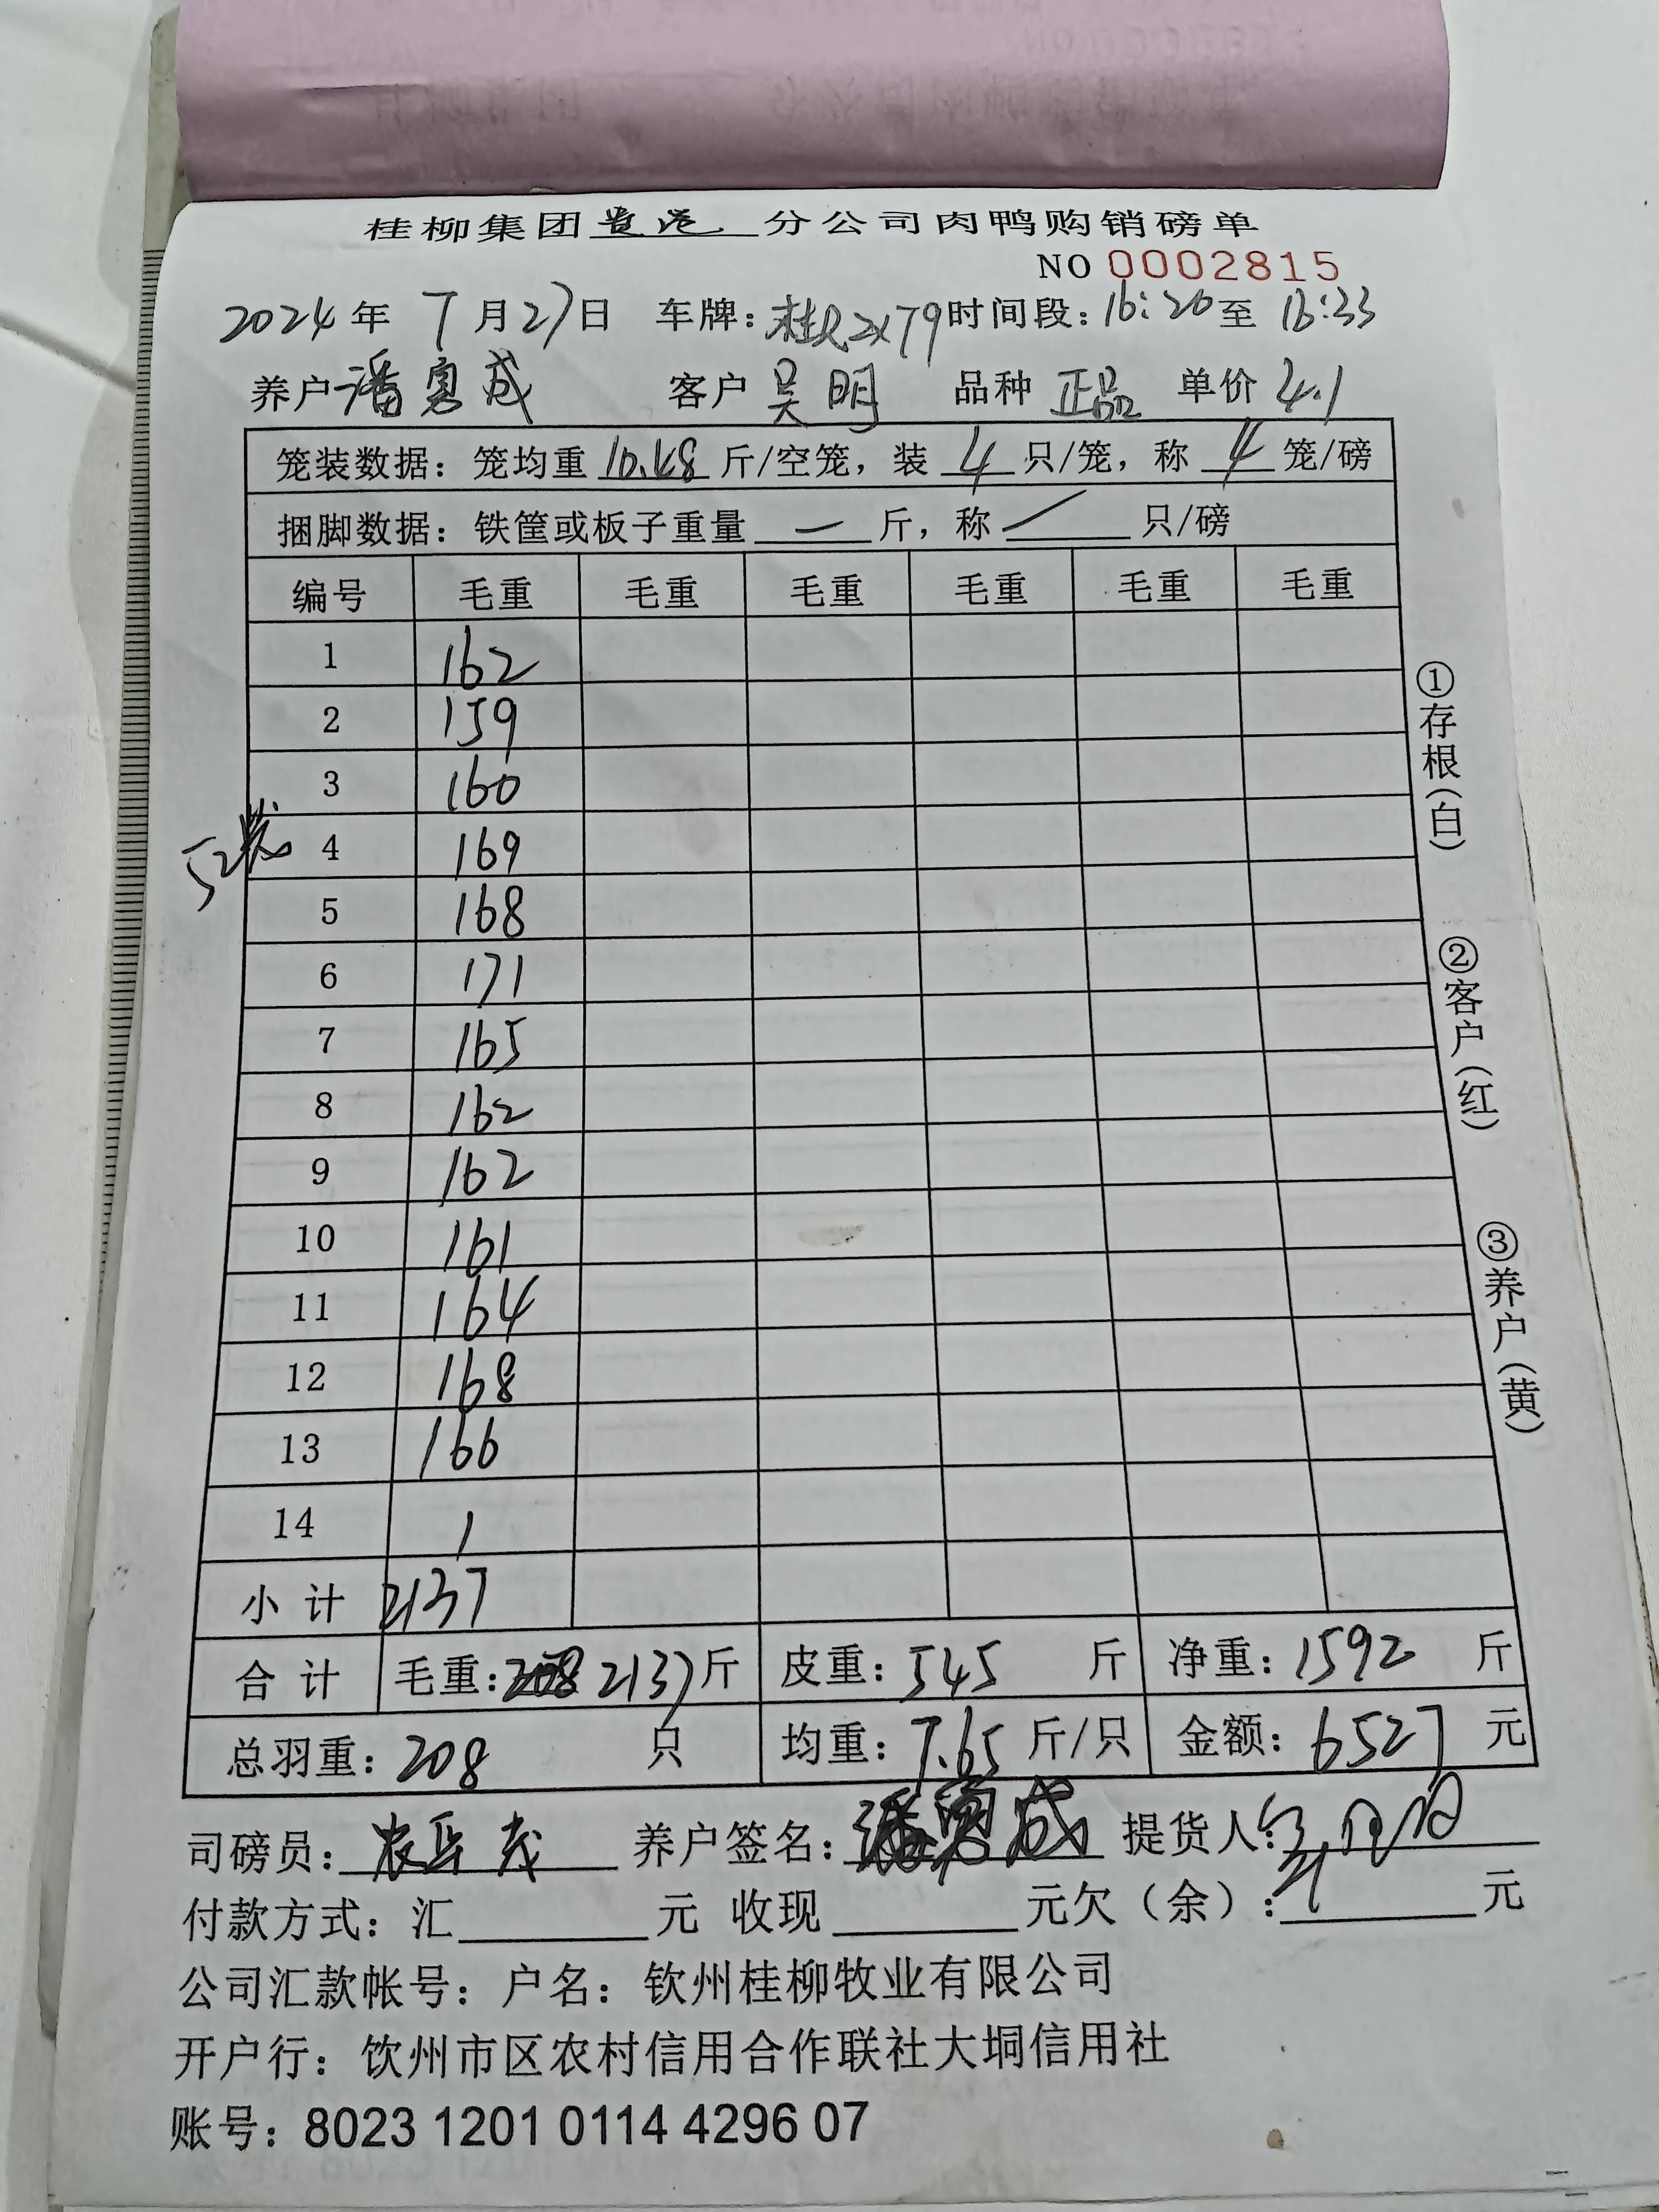 桂柳集团贵港分公司肉鸭购销磅单
NO 0002815
2024年7月27日 车牌:桂R2X79 时间段:16:20至16:33
养户 潘寛成 客户 吴明 品种 正品 单价 4.1
笼装数据:笼均重 10.48 斤/空笼,装 4 只/笼,称 4 笼/磅
捆脚数据:铁筐或板子重量 — 斤,称 / 只/磅
编号 毛重 毛重 毛重 毛重 毛重 毛重
1 162
2 159
3 160
52笼
4 169
5 168
6 171
7 165
8 162
9 162
10 161
11 164
12 168
13 166
14 /
小计 2137
合计 毛重:2137斤 皮重:545 斤 净重:1592 斤
总羽重:208 只 均重:7.65 斤/只 金额:6527 元
司磅员: 养户签名: 提货人:
付款方式:汇 元 收现 元欠(余): 元
公司汇款帐号:户名:钦州桂柳牧业有限公司
开户行:饮州市区农村信用合作联社大垌信用社
账号:8023 1201 0114 4296 07
①存根(白)
②客户(红)
③养户(黄)